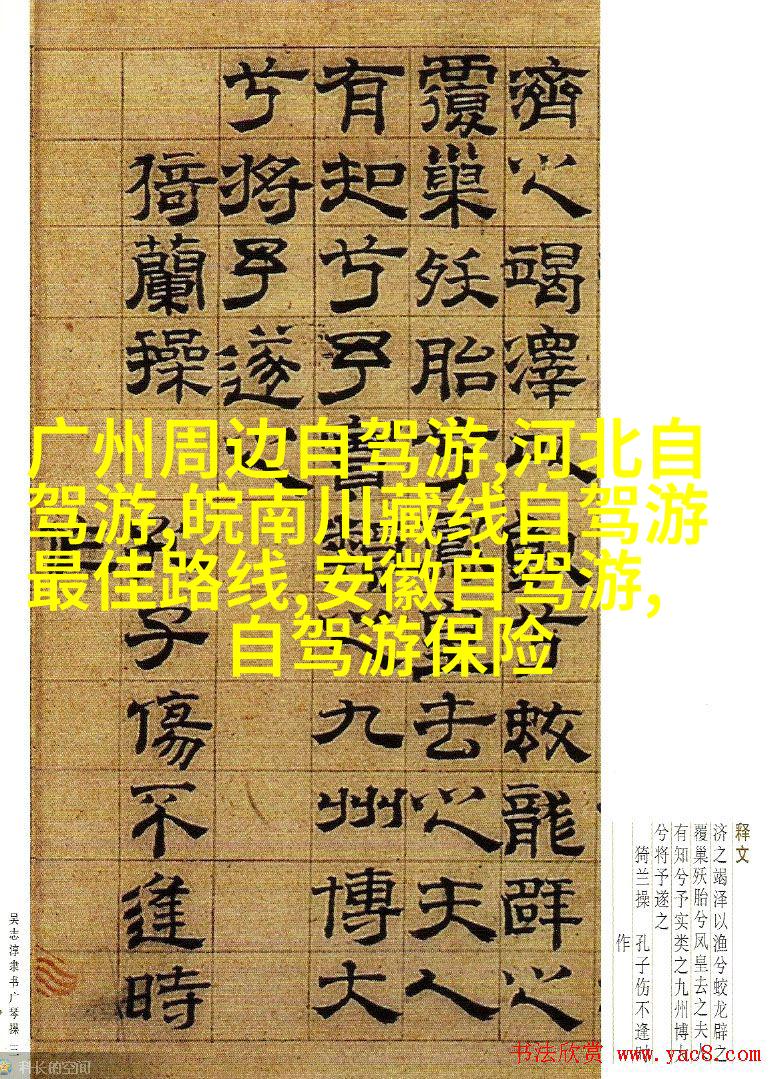 濟之竭澤兮蛟龍辟之
覆巢殀胎皇去之夫人
有知兮予之九州博大
兮將予遂之
猗蘭操
子傷不逢時
广州周边自驾游,河北自
驾游,皖南川藏线自驾游
最佳路线,安徽自驾游,
自驾游保险
释文
济之竭泽以渔兮蛟龙辟之
覆巢殀胎兮凤皇去之夫
有知兮予实类之九州博
兮将予遂之
猗兰操 孔子伤不逢时
作
吴志淳隶书广琴操 三
科长的空间
书法欣赏 www.yac8.com